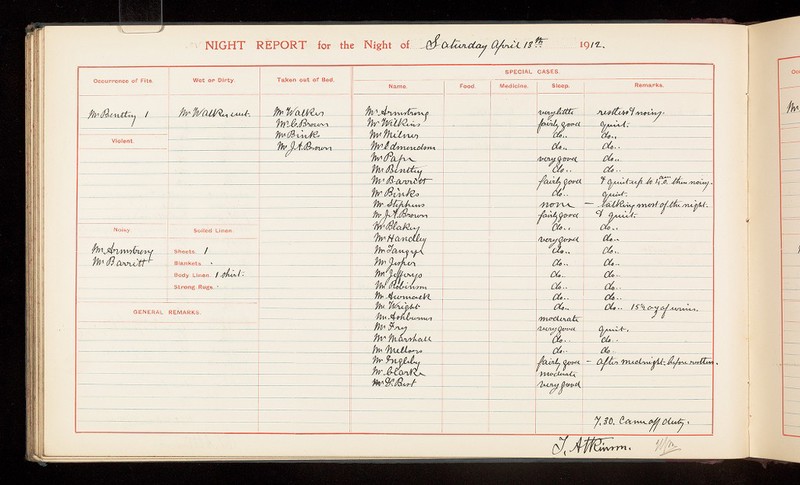 NIGHT REPORT for the Night of Saturday April 13th 1912.
Occurrence of Fits.
Wet or Dirty.
Taken out of Bed.
SPECIAL CASES.
Name.
Food.
Medicine.
Sleep.
Remarks.
Mr Bentley 1
Mr Walker wet.
Mr Walker
Mr C. Brown
Mr Binks
Mr J. A. Brown
Violent.
Noisy.
Mr Armstrong
Mr Barritt
Soiled Linen.
Sheets. 1
Blankets.
Body Linen. 1 shirt.
Strong Rugs.
GENERAL REMARKS.
Mr Armstrong very little restless & noisy.
Mr Wilkins fairly good quiet.
Mr Milner do.. do..
Mr Edmondson do.. do..
Mr very good do..
Mr Bentley do.. do..
Mr Barritt fairly good quiet up to then noisy.
Mr Binks do.. quiet.
Mr Stephens none – talking most of the night.
Mr J. A. Brown fairly good & quiet.
Mr Blakey do.. do..
Mr Handley very good do..
Mr Tangye do.. do..
Mr Jesper do.. do..
Mr Jefferys do.. do..
Mr Robinson do.. do..
Mr do.. do..
Mr Wright do.. do.. 15 oz of urine.
Mr Ashburner moderate
Mr Fry very good quiet.
Mr Marshall do.. do..
Mr Mellors do.. do..
Mr Ingleby fairly good – after midnight. before restless.
Mr Clarke moderate
Mr Best very good
7.30. Came off duty.
J. Atkinson.